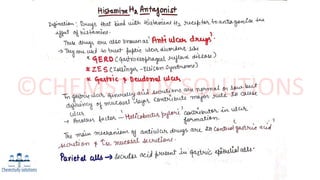 Histamine H₂ Antagonist
Definition: Drugs that bind with Histamine H₂ receptor to antagonize the
effect of histamine.
These drugs are also known as "Anti ulcer drugs"
→ They are used to treat peptic ulcer disorders like
* GERD (Gastroesophageal reflux disease)
* ZES (Zollinger-Ellison Syndrome)
* Gastric & Deudonal ulcer
In gastric ulcer generally acid secretions are normal or low but
deficiency of mucosal layer contribute major role to cause
ulcer
→ Another factor - Helicobacter pylori contributor in ulcer
formation.
The main mechanism of antiulcer drugs are to control gastric acid
secretion & mucosal secretions.
Parietal cells → Secretes acid present in gastric epithelial cells
©CHEMISTRY SOLUTIONS
Chemistry solutions